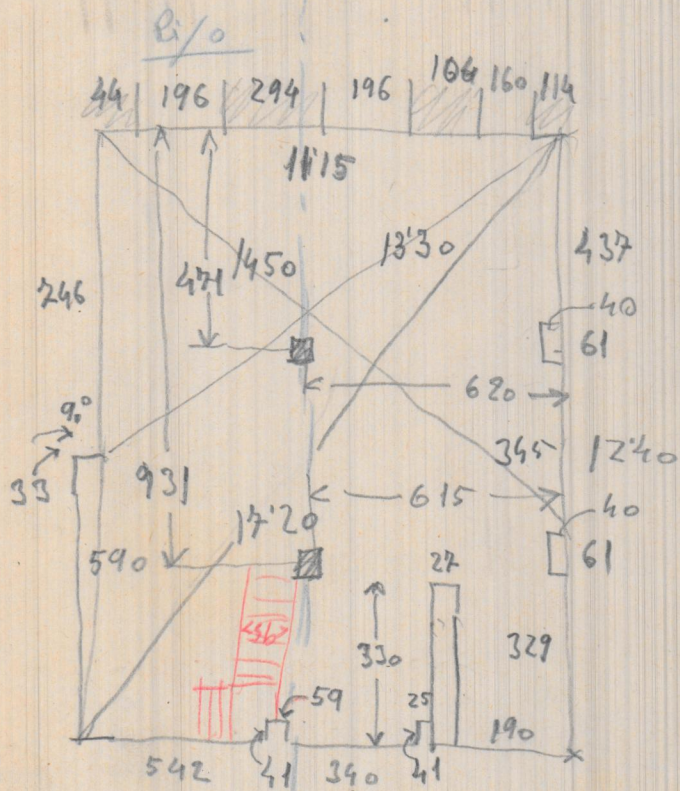 44 196 294 196 164 160 114
11'15
746
471
1450
13'30
437
40
61
620
9.°
33
931
345
12'40
615
40
61
590
17'20
27
330
329
59
25
190
542
41
340
41